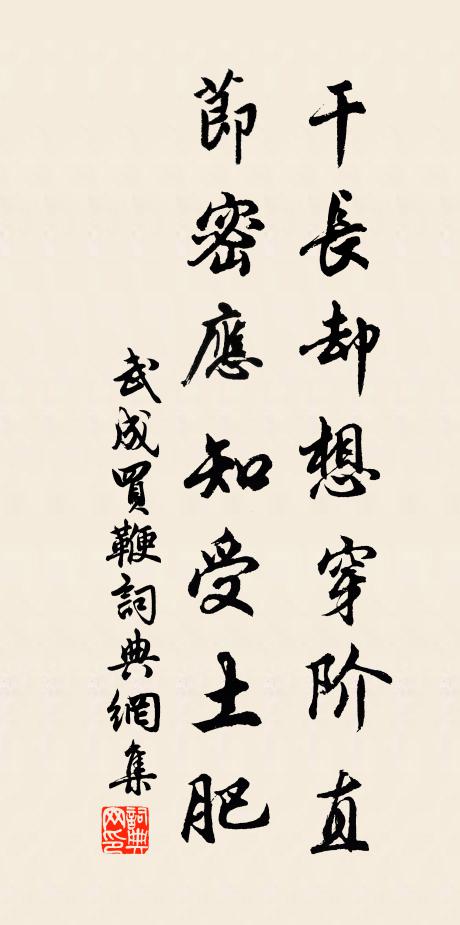 干長却想穿阶直
節密應知受土肥
武成買鞭詞典網集
詞典网印